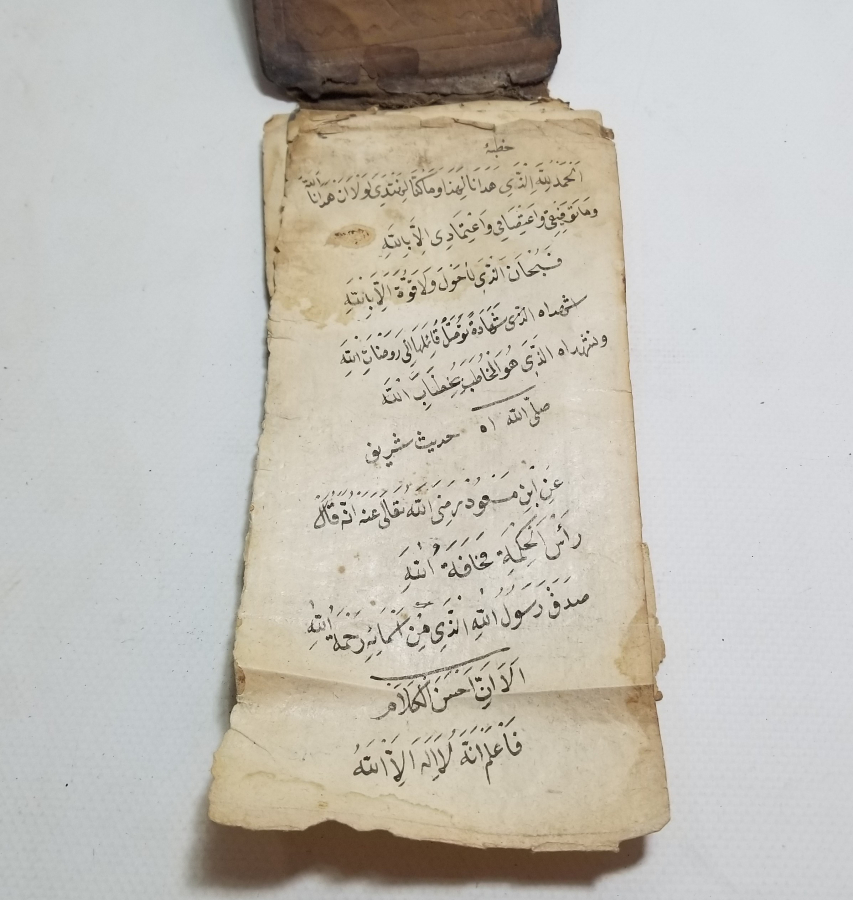 خطبهٔ
اَلْحَمْدُ لِلّٰهِ الَّذِي هَدَانَا لِهٰذَا وَمَا كُنَّا لِنَهْتَدِيَ لَوْلَا اَنْ هَدَانَا اللّٰهُ
وَمَا تَوْفِيقِي وَاعْتِصَامِي وَاعْتِمَادِي اِلَّا بِاللّٰهِ
فَسُبْحَانَ الَّذِي لَا حَوْلَ وَلَا قُوَّةَ اِلَّا بِاللّٰهِ
اشهد اه الذى شَهَادَةً تُوصِلُ قَائِلَهَا اِلَى رَوْضَاتِ اللّٰهِ
ونشهد اه الَّذِي هُوَ الْمُخَاطَبُ بِخِطَابِ اللّٰهِ
صلى الله اه حديث شريف
عَنِ ابْنِ مَسْعُودٍ رَضِيَ اللّٰهُ تَعَالَى عَنْهُ اَنَّهُ قَالَ
رَأْسُ الْحِكْمَةِ مَخَافَةُ اللّٰهِ
صَدَقَ رَسُولُ اللّٰهِ الَّذِي مِنْ اَسْمَائِهِ رَحْمَةُ اللّٰهِ
اَلَا اِنَّ اَحْسَنَ الْكَلَامِ
فَاعْلَمْ اَنَّهُ لَا اِلٰهَ اِلَّا اللّٰهُ